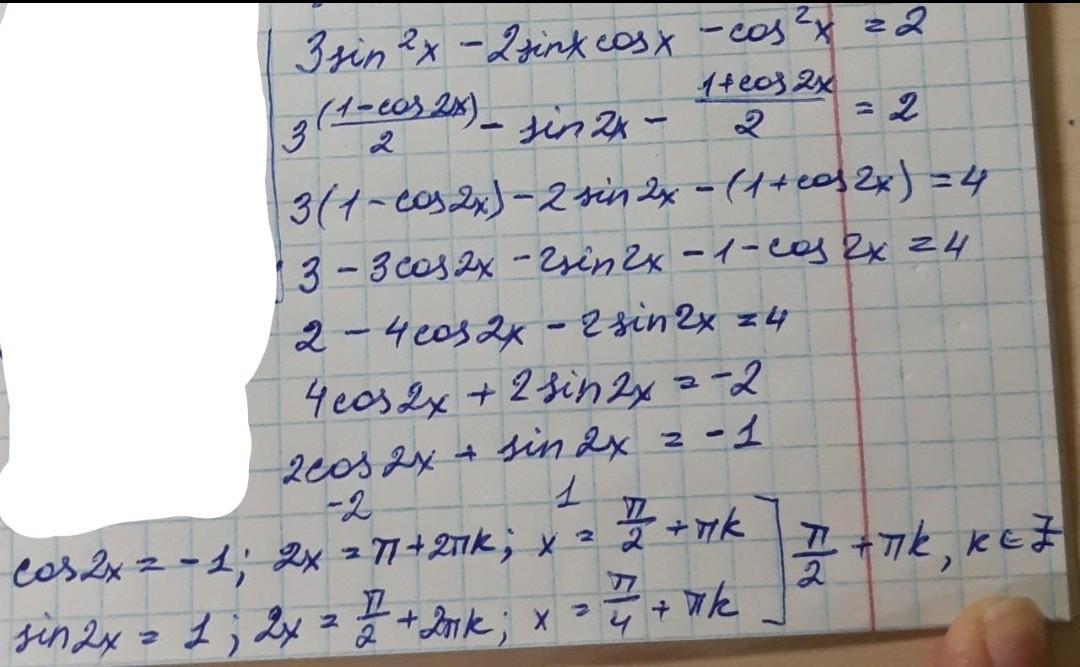 3sin²x - 2sinx cosx - cos²x = 2
3 (1-cos2x)/2 - sin2x - (1+cos2x)/2 = 2
3(1-cos2x) - 2sin2x - (1+cos2x) = 4
3 - 3cos2x - 2sin2x - 1 - cos2x = 4
2 - 4cos2x - 2sin2x = 4
4cos2x + 2sin2x = -2
2cos2x + sin2x = -1
-2 1
cos2x = -1; 2x = π + 2πk; x = π/2 + πk ] π/2 + πk, k ∈ Z
sin2x = 1; 2x = π/2 + 2πk; x = π/4 + πk